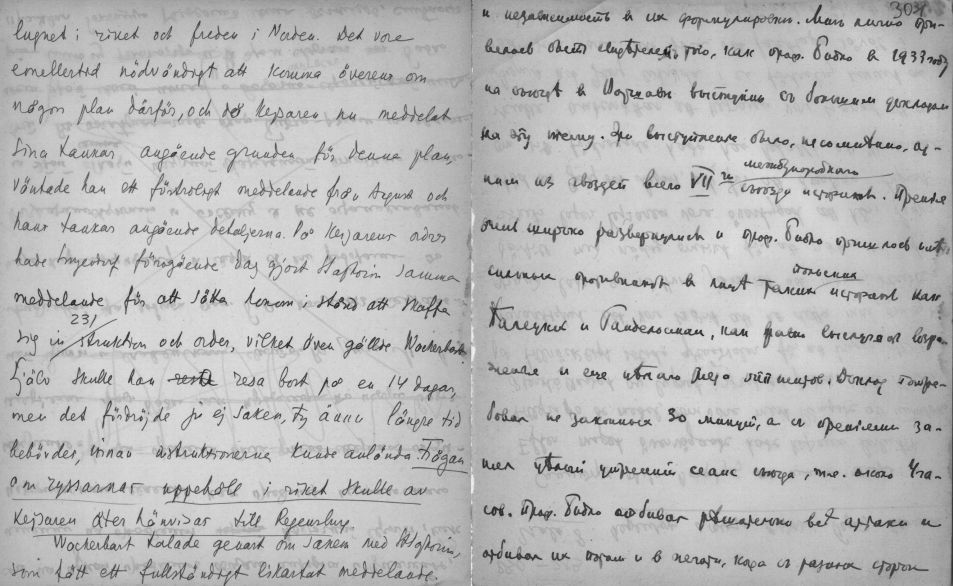 lugnet i riket och freden i Norden. Det vore
emellertid nödvändigt att komma överens om
någon plan därför, och då Kejsaren nu meddelat
sina tankar angående grunden för denna plan,
väntade han ett förtroligt meddelande från August och
hans tankar angående detaljerna. På Kejsarens order
hade föregående dag gjort samma
meddelande för att sätta honom i stånd att skaffa
231
sig instruktion och order, vilket även gällde Wackerbart.
Själv skulle han resa bort på en 14 dagar,
men det fördröjde ju ej saken, ty ännu längre tid
behövdes, innan instruktionerna kunde anlända. Frågan
om ryssarnas uppehåll i riket skulle av
Kejsaren åter hänvisas till Regensburg
Wackerbart talade genast om saken med
som fått ett fullständigt likartat meddelande.
303
и независимость в их формулировки. Мне лично при-
велось быть свидѣтелем того, как проф. Бидло в 1933 году
на съезде в Варшаве выступил с большим докладом
на эту тему. Это выступление было, несомненно, од-
международного
ним из гвоздей всего VII го съезда историков. Прения
очень широко развернулись и проф. Бидло пришлось
польских
сильных противников в лицѣ таких историков как
Галецкий и Гандельсман, нам равно выслушав возра-
жения и еще цѣлого ряда Доклад потре-
бовал не законных 30 минут, а с прениями за-
нял цѣлый утренний сеанс съезда, т.е. около 4 ча-
сов. Проф. Бидло отбивал рѣшительно всѣ атаки и
отбивал их потом и в печати, когда с разных сторон